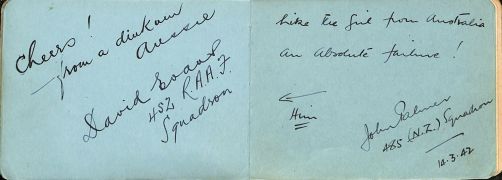 Cheers!
from a dinkum
Aussie
David Evans
452 R.A.A.F.
Squadron
Like the girl from Australia
an absolute failure!
←
Him
John Palmer
485 (N.Z.) Squadron
14.3.42